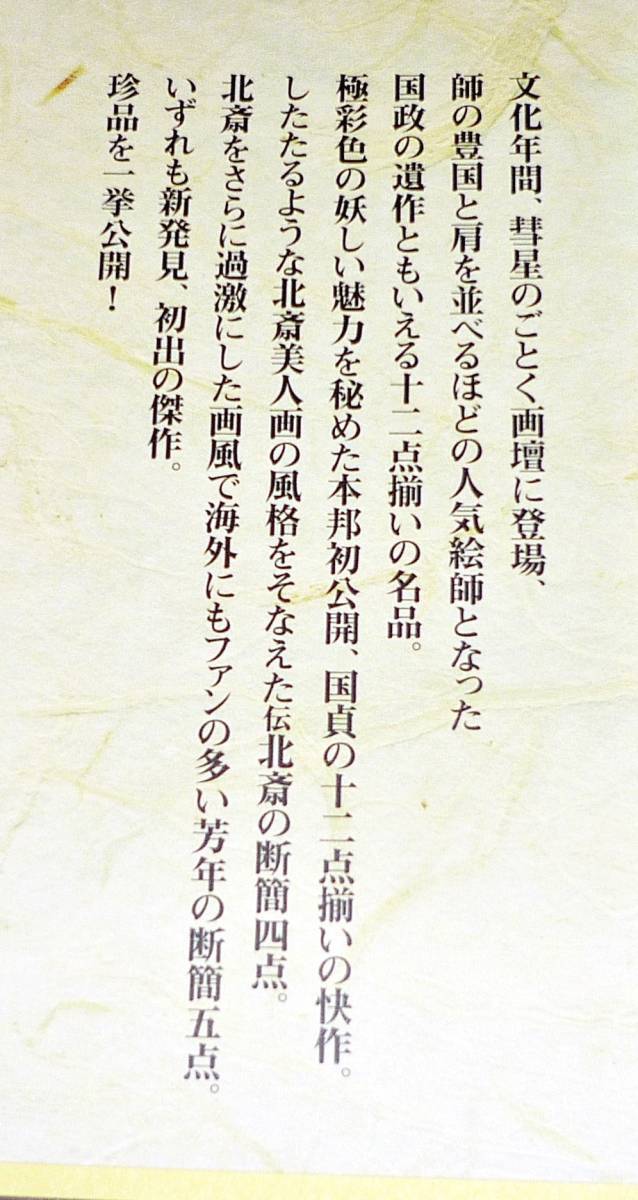 文化年間、彗星のごとく画壇に登場、
師の豊国と肩を並べるほどの人気絵師となった
国政の遺作ともいえる十二点揃いの名品。
極彩色の妖しい魅力を秘めた本邦初公開、国貞の十二点揃いの快作。
したたるような北斎美人画の風格をそなえた伝北斎の断簡四点。
北斎をさらに過激にした画風で海外にもファンの多い芳年の断簡五点。
いずれも新発見、初出の傑作。
珍品を一挙公開！